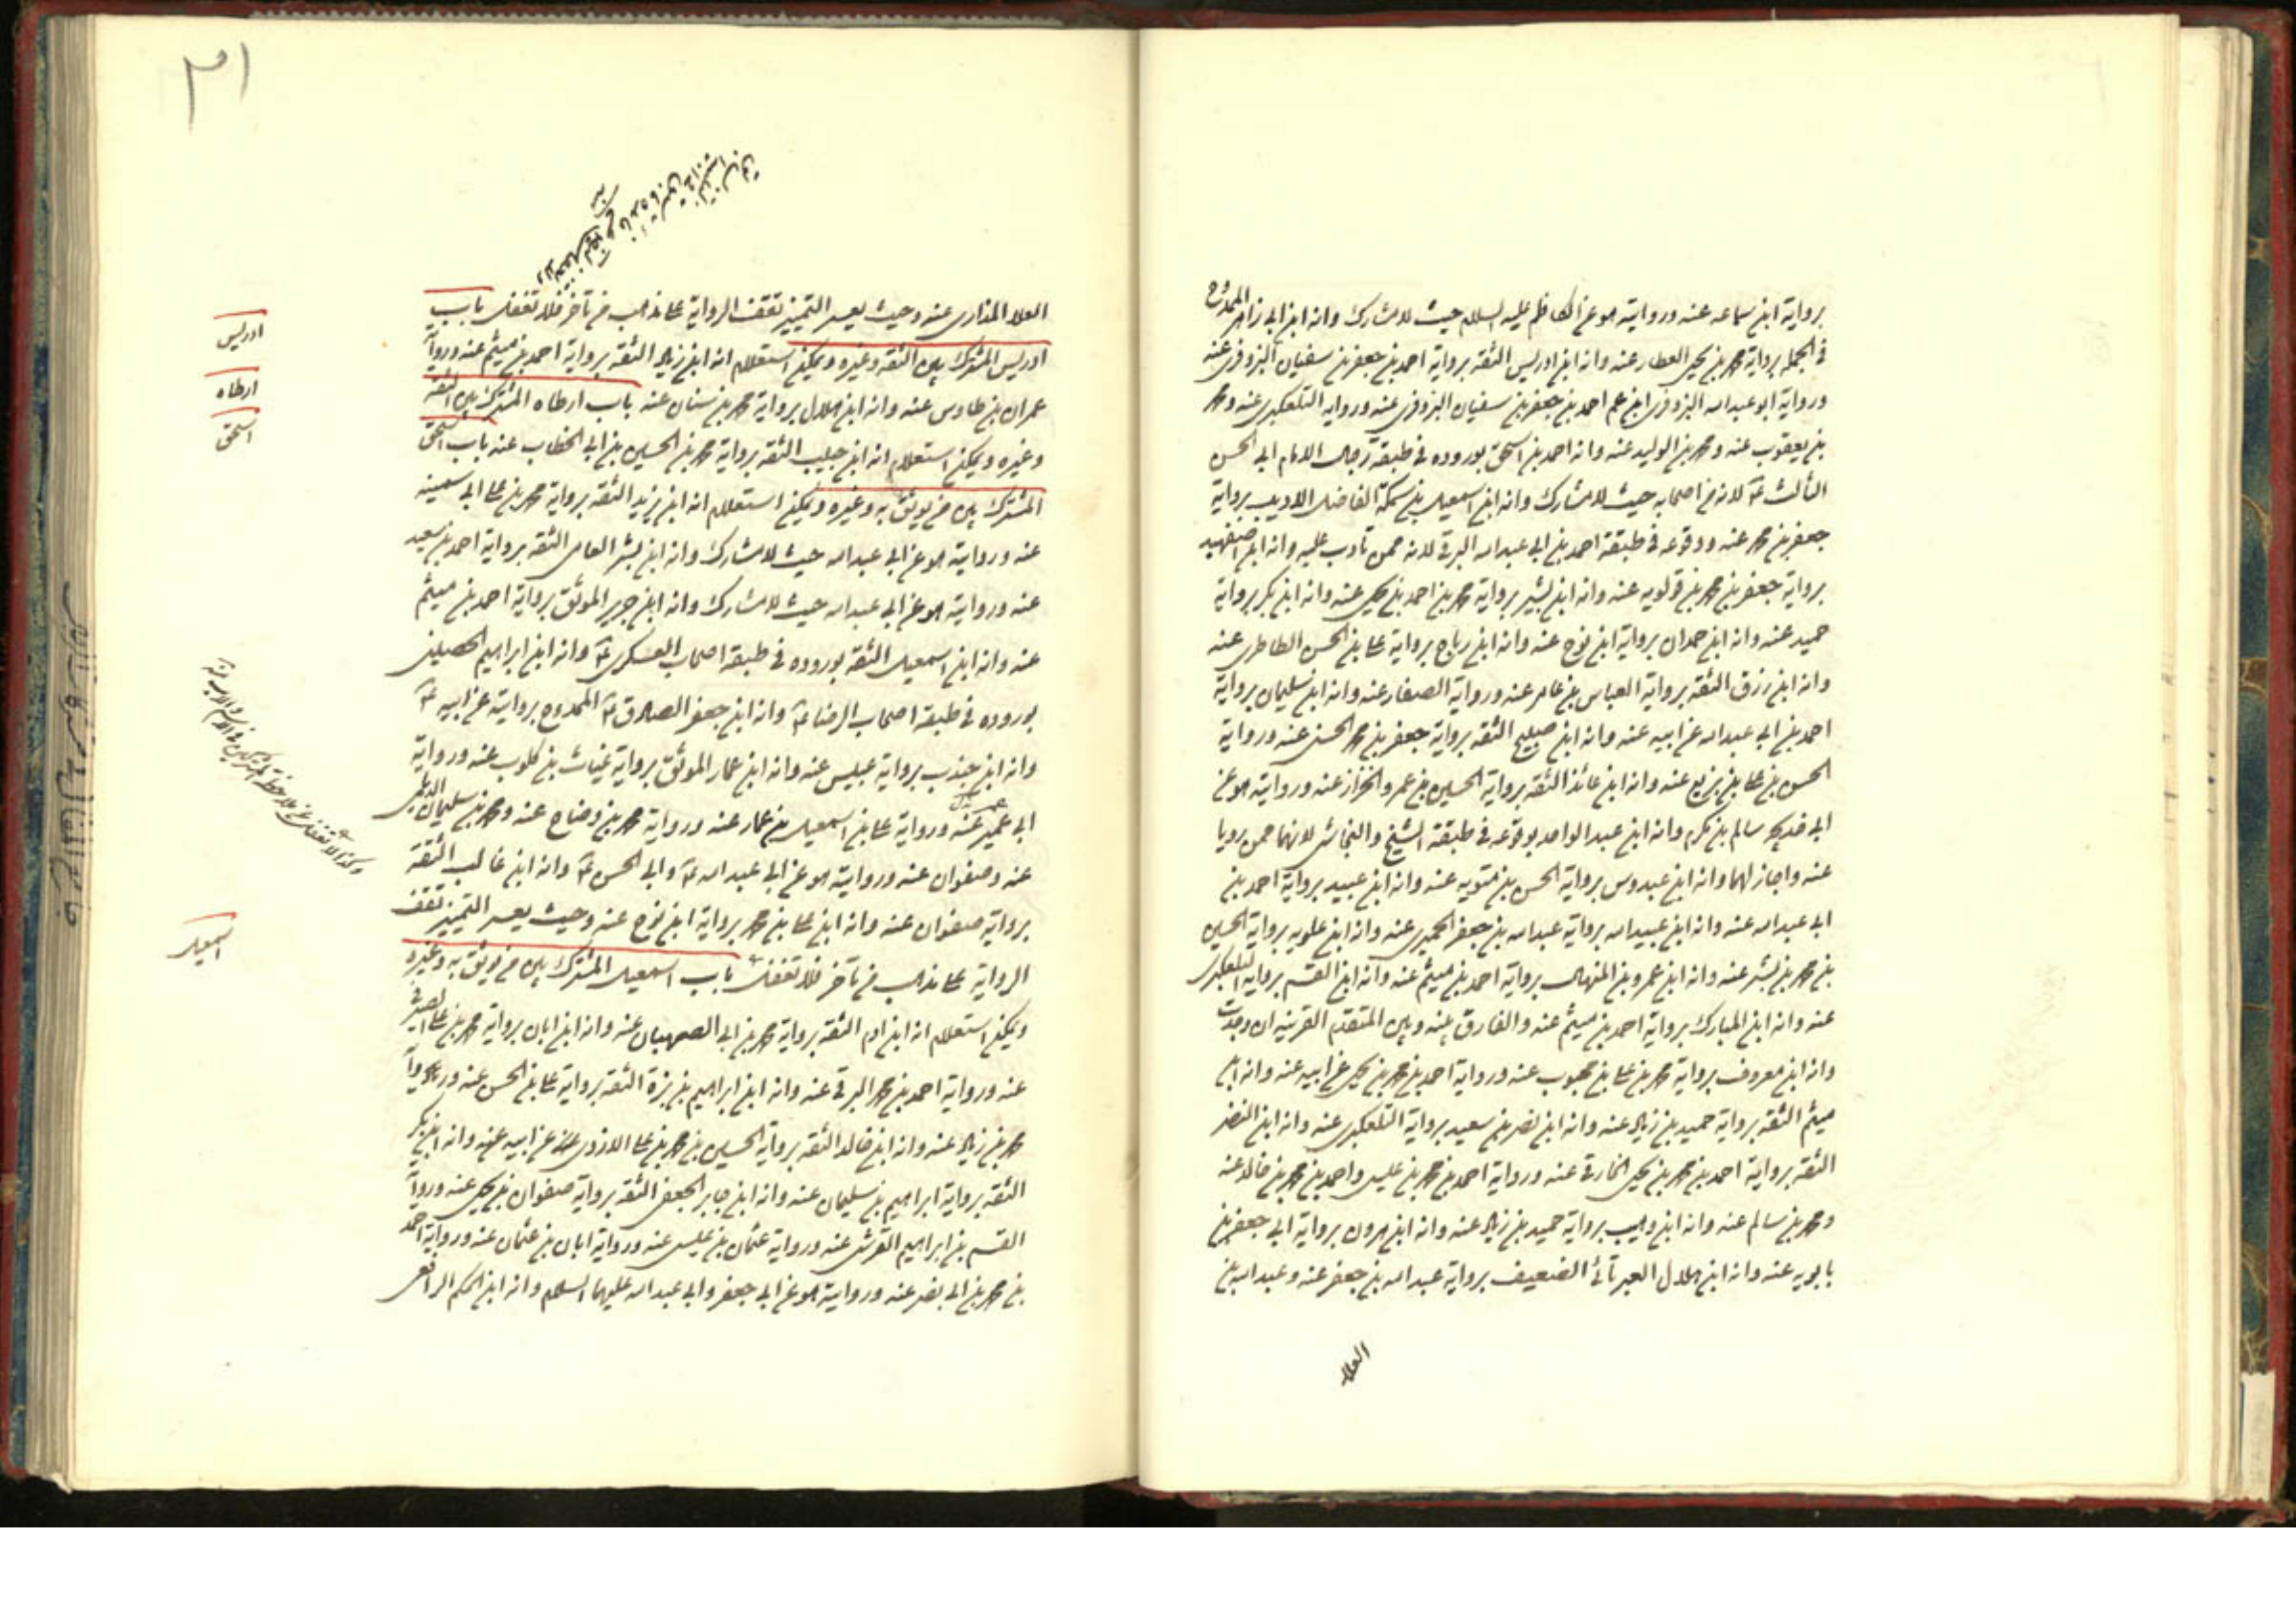 برواية ابن سماعه عنه وروايته هو عن الكاظم عليه السلام حيث لا مشارك وانه ابن ابي زاهر الممدوح
في الجملة برواية محمد بن يحيى العطار عنه وانه ابن ادريس الثقه برواية احمد بن جعفر بن سفيان البزوفرى عنه
ورواية ابو عبد الله البزوفرى ابن عم احمد بن جعفر بن سفيان البزوفرى عنه ورواية التلعكبرى عنه ومحمد
بن يعقوب عنه ومحمد بن الوليد عنه وانه احمد بن اسحق بوروده في طبقة رجال الامام ابي الحسن
الثالث ع لانه من اصحابه حيث لا مشارك وانه ابن اسمعيل بن سمكة الفاضل الاديب برواية
جعفر بن محمد عنه ووقوعه في طبقة احمد بن ابي عبد الله البرقي لانه ممن تأدب عليه وانه ابن اصفهبد
برواية جعفر بن محمد بن قولويه عنه وانه ابن بشير برواية محمد بن احمد بن يحيى عنه وانه ابن بكر برواية
حميد عنه وانه ابن حمدان برواية ابن نوح عنه وانه ابن رباح برواية على بن الحسن الطاطرى عنه
وانه ابن رزق الثقه برواية العباس بن عامر عنه ورواية الصفار عنه وانه ابن سليمان برواية
احمد بن ابي عبد الله عن ابيه عنه وانه ابن صبيح الثقه برواية جعفر بن محمد الحسنى عنه ورواية
الحسن بن على بن بزيع عنه وانه ابن عائذ الثقه برواية الحسين بن عمرو الخزاز عنه وروايته هو عن
ابي خديجه سالم بن مكرم وانه ابن عبد الواحد بوقوعه في طبقة الشيخ والنجاشى لانهما ممن رويا
عنه واجاز لهما وانه ابن عبدوس برواية الحسن بن متويه عنه وانه ابن عبيد برواية احمد بن
ابي عبد الله عنه وانه ابن عبيد الله برواية عبد الله بن جعفر الحميرى عنه وانه ابن علويه برواية الحسين
بن محمد بن بشر عنه وانه ابن عمرو بن المنهال برواية احمد بن ميثم عنه وانه ابن القسم برواية التلعكبرى
عنه وانه ابن المبارك برواية احمد بن ميثم عنه والفارق بينه وبين المتقدم القرينه ان وجدت
وانه ابن معروف برواية محمد بن على بن محبوب عنه ورواية احمد بن محمد بن يحيى عن ابيه عنه وانه ابن
ميثم الثقه برواية حميد بن زياد عنه وانه ابن نصر بن سعيد برواية التلعكبرى عنه وانه ابن النضر
الثقه برواية احمد بن محمد بن يحيى الخازنى عنه ورواية احمد بن محمد بن عيسى واحمد بن محمد بن خالد عنه
ومحمد بن سالم عنه وانه ابن وهيب برواية حميد بن زياد عنه وانه ابن هرون برواية ابي جعفر بن
بابويه عنه وانه ابن هلال العبرتائى الضعيف برواية عبد الله بن جعفر عنه وعبد الله بن
العلا
٣١
العلا المذارى عنه وحيث يعسر التميز تقف الرواية على مذهب من تأخر فلا تغفل باب
ادريس المشترك بين الثقه وغيره ويمكن استعلام انه ابن زياد الثقه برواية احمد بن ميثم عنه ورواية
عمران بن طاوس عنه وانه ابن هلال برواية محمد بن سنان عنه باب ارطاه المشترك بين الثقه
وغيره ويمكن استعلام انه ابن حبيب الثقه برواية محمد بن الحسين بن ابي الخطاب عنه باب اسحق
المشترك بين من يوثق به وغيره ويمكن استعلام انه ابن يزيد الثقه برواية محمد بن على ابي سمينه
عنه وروايته هو عن ابي عبد الله حيث لا مشارك وانه ابن بشر العامى الثقه برواية احمد بن سعيد
عنه وروايته هو عن ابي عبد الله حيث لا مشارك وانه ابن جرير الموثق برواية احمد بن ميثم
عنه وانه ابن اسمعيل الثقه بوروده في طبقة اصحاب العسكرى ع وانه ابن ابراهيم الحصينى
بوروده في طبقة اصحاب الرضا ع وانه ابن جعفر الصادق ع الممدوح بروايته عن ابيه ع
وانه ابن جندب برواية عبيس عنه وانه ابن عمار الموثق برواية غياث بن كلوب عنه ورواية
ابي عمير عنه ورواية على بن اسمعيل بن عمار عنه ورواية محمد بن وضاح عنه ومحمد بن سليمان الديلمى
عنه وصفوان عنه وروايته هو عن ابي عبد الله ع وابي الحسن ع وانه ابن غالب الثقة
برواية صفوان عنه وانه ابن على بن محمد برواية ابن نوح عنه وحيث يعسر التميز تقف
الرواية على مذهب من تأخر فلا تغفل باب اسمعيل المشترك بين من يوثق به وغيره
ويمكن استعلام انه ابن ادم الثقه برواية محمد بن ابي الصهبان عنه وانه ابن ابان برواية محمد بن على الصيرفي
عنه ورواية احمد بن محمد البرقي عنه وانه ابن ابراهيم بن بزة الثقه برواية على بن الحسن عنه ورواية
محمد بن زياد عنه وانه ابن خالد الثقه برواية الحسين بن محمد بن على الازدى عن ابيه عنه وانه ابن بكر
الثقه برواية ابراهيم بن سليمان عنه وانه ابن جابر الجعفى الثقه برواية صفوان بن يحيى عنه ورواية
القسم بن ابراهيم القرشى عنه ورواية عثمان بن عيسى عنه ورواية ابان بن عثمان عنه ورواية احمد
بن محمد بن ابي نصر عنه وروايته هو عن ابي جعفر وابي عبد الله عليهما السلام وانه ابن الحكم الرافعى
ادريس
ارطاه
اسحق
اسمعيل